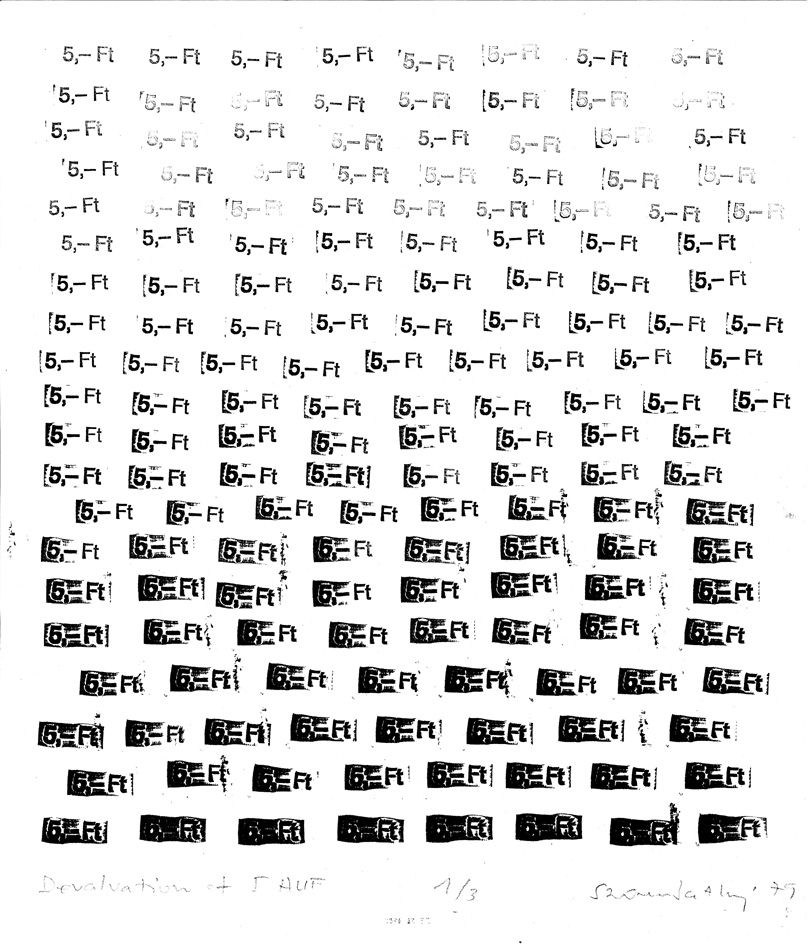 5,–Ft 5,–Ft 5,–Ft 5,–Ft 5,–Ft 5,–Ft 5,–Ft 5,–Ft
5,–Ft 5,–Ft 5,–Ft 5,–Ft 5,–Ft 5,–Ft 5,–Ft 5,–Ft
5,–Ft 5,–Ft 5,–Ft 5,–Ft 5,–Ft 5,–Ft 5,–Ft 5,–Ft
5,–Ft 5,–Ft 5,–Ft 5,–Ft 5,–Ft 5,–Ft 5,–Ft 5,–Ft
5,–Ft 5,–Ft 5,–Ft 5,–Ft 5,–Ft 5,–Ft 5,–Ft 5,–Ft 5,–Ft
5,–Ft 5,–Ft 5,–Ft 5,–Ft 5,–Ft 5,–Ft 5,–Ft 5,–Ft
5,–Ft 5,–Ft 5,–Ft 5,–Ft 5,–Ft 5,–Ft 5,–Ft 5,–Ft
5,–Ft 5,–Ft 5,–Ft 5,–Ft 5,–Ft 5,–Ft 5,–Ft 5,–Ft 5,–Ft
5,–Ft 5,–Ft 5,–Ft 5,–Ft 5,–Ft 5,–Ft 5,–Ft 5,–Ft 5,–Ft
5,–Ft 5,–Ft 5,–Ft 5,–Ft 5,–Ft 5,–Ft 5,–Ft 5,–Ft 5,–Ft
5,–Ft 5,–Ft 5,–Ft 5,–Ft 5,–Ft 5,–Ft 5,–Ft 5,–Ft
5,–Ft 5,–Ft 5,–Ft 5,–Ft 5,–Ft 5,–Ft 5,–Ft 5,–Ft
5,–Ft 5,–Ft 5,–Ft 5,–Ft 5,–Ft 5,–Ft 5,–Ft 5,–Ft
5,–Ft 5,–Ft 5,–Ft 5,–Ft 5,–Ft 5,–Ft 5,–Ft 5,–Ft
5,–Ft 5,–Ft 5,–Ft 5,–Ft 5,–Ft 5,–Ft 5,–Ft 5,–Ft
5,–Ft 5,–Ft 5,–Ft 5,–Ft 5,–Ft 5,–Ft 5,–Ft 5,–Ft
5,–Ft 5,–Ft 5,–Ft 5,–Ft 5,–Ft 5,–Ft 5,–Ft 5,–Ft
5,–Ft 5,–Ft 5,–Ft 5,–Ft 5,–Ft 5,–Ft 5,–Ft 5,–Ft
5,–Ft 5,–Ft 5,–Ft 5,–Ft 5,–Ft 5,–Ft 5,–Ft 5,–Ft
5,–Ft 5,–Ft 5,–Ft 5,–Ft 5,–Ft 5,–Ft 5,–Ft 5,–Ft
Devalvation of 5 HUF 1/3 '79